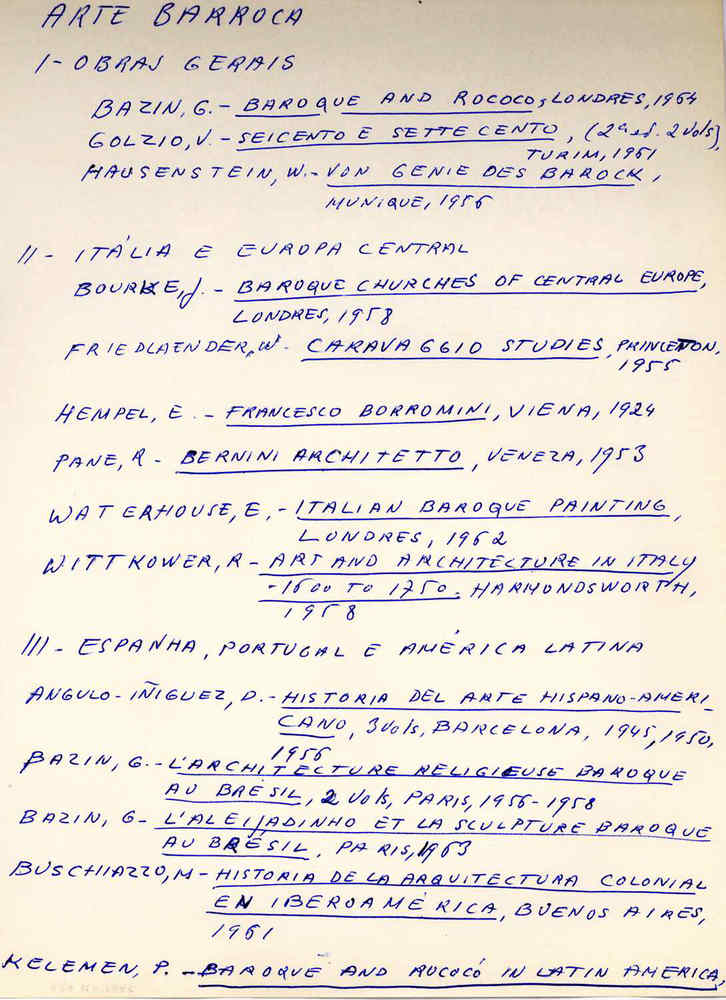 ARTE BARROCA
I - OBRAS GERAIS
BAZIN, G. - BAROQUE AND ROCOCO, LONDRES, 1964
GOLZIO, V. - SEICENTO E SETTECENTO, (2ª ed. 2 vols),
TURIM, 1961
HAUSENSTEIN, W. - VON GENIE DES BAROCK,
MUNIQUE, 1956
II - ITÁLIA E EUROPA CENTRAL
BOURKE, J. - BAROQUE CHURCHES OF CENTRAL EUROPE,
LONDRES, 1958
FRIEDLAENDER, W - CARAVAGGIO STUDIES, PRINCETON,
1955
HEMPEL, E. - FRANCESCO BORROMINI, VIENA, 1924
PANE, R - BERNINI ARCHITETTO, VENEZA, 1953
WATERHOUSE, E, - ITALIAN BAROQUE PAINTING,
LONDRES, 1962
WITTKOWER, R - ART AND ARCHITECTURE IN ITALY
- 1600 TO 1750. HARMONDSWORTH,
1958
III - ESPANHA, PORTUGAL E AMÉRICA LATINA
ANGULO-IÑIGUEZ, D. - HISTORIA DEL ARTE HISPANO-AMERI-
CANO, 3 vols, BARCELONA, 1945, 1950,
1956
BAZIN, G. - L'ARCHITECTURE RELIGIEUSE BAROQUE
AU BRÉSIL, 2 vols, PARIS, 1956-1958
BAZIN, G - L'ALEIJADINHO ET LA SCULPTURE BAROQUE
AU BRÉSIL, PARIS, 1963
BUSCHIAZZO, M - HISTORIA DE LA ARQUITECTURA COLONIAL
EN IBEROAMÉRICA, BUENOS AIRES,
1961
KELEMEN, P. - BAROQUE AND ROCOCÓ IN LATIN AMERICA,